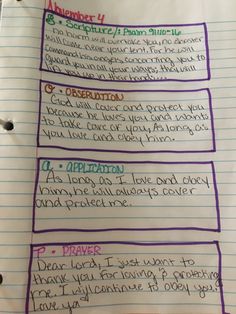 November 4
B • Scripture/: Psalm 91:10-16
no harm will overtake you, no disaster
will come near your tent. For he will
command his angels concerning you to
guard you in all your ways; they will
lift you up in their hands
O • OBSERVATION
God will cover and protect you
because he loves you and wants
to take care of you, As long as
you love and obey him.
A • APPLICATION
As long as I love and obey
him, he will always cover
and protect me.
P • PRAYER
Dear Lord, I just want to
thank you for loving, & protecting
me. I will continue to obey you.
Love ya